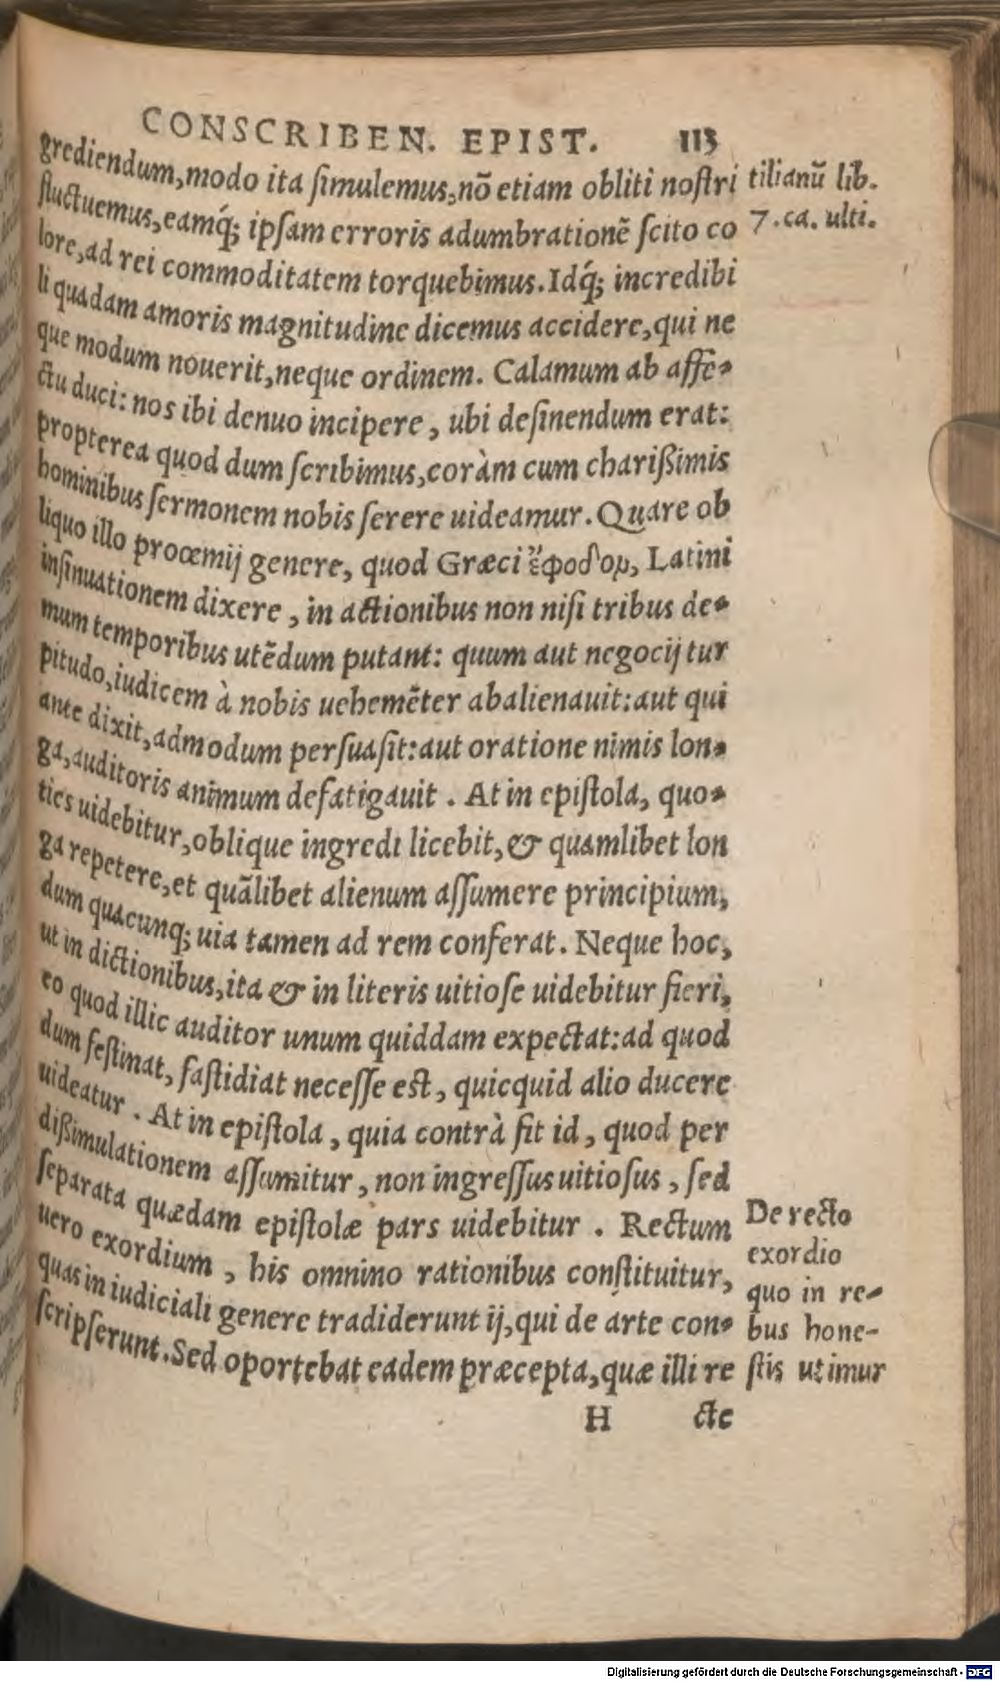 CONSCRIBEN. EPIST. 113
grediendum, modo ita ſimulemus, nō etiam obliti noſtri
fluctuemus, eamq́; ipſam erroris adumbrationē ſcito co
lore, ad rei commoditatem torquebimus. Idq́; incredibi
li quadam amoris magnitudine dicemus accidere, qui ne
que modum nouerit, neque ordinem. Calamum ab affe-
ctu duci: nos ibi denuo incipere, ubi deſinendum erat:
propterea quod dum ſcribimus, coràm cum charißimis
hominibus ſermonem nobis ſerere uideamur. Quare ob
liquo illo proœmij genere, quod Græci ἔφοδομ, Latini
inſinuationem dixere, in actionibus non niſi tribus de-
mum temporibus utēdum putant: quum aut negocij tur
pitudo, iudicem à nobis uehemēter abalienauit: aut qui
ante dixit, admodum perſuaſit: aut oratione nimis lon-
ga, auditoris animum defatigauit. At in epiſtola, quo-
ties uidebitur, oblique ingredi licebit, & quamlibet lon
ga repetere, et quālibet alienum aſſumere principium,
dum quacunq; uia tamen ad rem conferat. Neque hoc,
ut in dictionibus, ita & in literis uitioſe uidebitur fieri,
eo quod illic auditor unum quiddam expectat: ad quod
dum feſtinat, faſtidiat neceſſe eſt, quicquid alio ducere
uideatur. At in epiſtola, quia contrà fit id, quod per
dißimulationem aſſumitur, non ingreſſus uitioſus, ſed
ſeparata quædam epiſtolæ pars uidebitur. Rectum
uero exordium, his omnino rationibus conſtituitur,
quas in iudiciali genere tradiderunt ij, qui de arte con-
ſcripſerunt. Sed oportebat eadem præcepta, quæ illi re
H cte
tilianū lib.
7. ca. ulti.
De recto
exordio
quo in re-
bus hone-
ſtis utimur
Digitalisierung gefördert durch die Deutsche Forschungsgemeinschaft - DFG